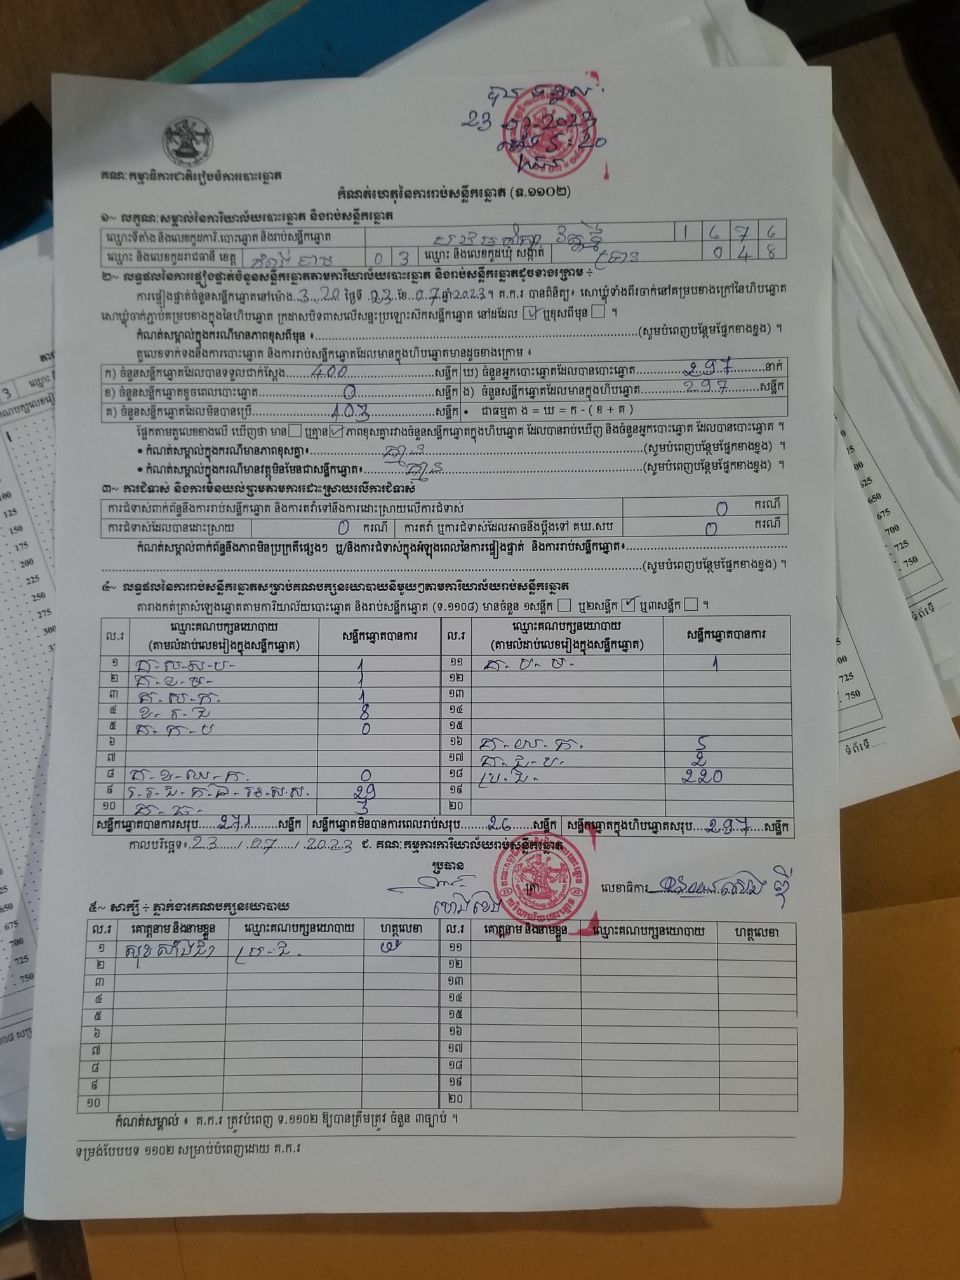 23 2023
5:20
គណៈកម្មាធិការជាតិរៀបចំការបោះឆ្នោត
កំណត់ហេតុនៃការរាប់សន្លឹកឆ្នោត (ទ.១១០២)
១~ លក្ខណៈសម្គាល់នៃការិយាល័យបោះឆ្នោត និងរាប់សន្លឹកឆ្នោត
ឈ្មោះទីតាំង និងលេខកូដការិ.បោះឆ្នោត និងរាប់សន្លឹកឆ្នោត 1 6 7 6
ឈ្មោះ និងលេខកូដរាជធានី ខេត្ត កំពង់ចាម 0 3 ឈ្មោះ និងលេខកូដឃុំ សង្កាត់ 0 4 8
២~ លទ្ធផលនៃការផ្ទៀងផ្ទាត់ចំនួនសន្លឹកឆ្នោតតាមការិយាល័យបោះឆ្នោត និងរាប់សន្លឹកឆ្នោតដូចខាងក្រោម ÷
ការផ្ទៀងផ្ទាត់ចំនួនសន្លឹកឆ្នោតនៅម៉ោង 3 20 ថ្ងៃទី 23 ខែ 07 ឆ្នាំ 2023 ។ គ.ក.រ បានពិនិត្យ៖ សោឃ្លុំទាំងពីរចាក់នៅគម្របខាងក្រៅនៃហិបឆ្នោត
សោឃ្លុំចាក់ភ្ជាប់គម្របខាងក្នុងនៃហិបឆ្នោត ក្រដាសបិទពាសលើសន្ទះប្រឡោះស៊កសន្លឹកឆ្នោត នៅដដែល ☑ ឬខុសពីមុន ☐ ។
កំណត់សម្គាល់ក្នុងករណីមានភាពខុសពីមុន ៖ (សូមបំពេញបន្ថែមផ្នែកខាងខ្នង) ។
តួលេខទាក់ទងនឹងការបោះឆ្នោត និងការរាប់សន្លឹកឆ្នោតដែលមានក្នុងហិបឆ្នោតមានដូចខាងក្រោម ៖
ក) ចំនួនសន្លឹកឆ្នោតដែលបានទទួលជាក់ស្តែង 400 សន្លឹក ឃ) ចំនួនអ្នកបោះឆ្នោតដែលបានបោះឆ្នោត 297 នាក់
ខ) ចំនួនសន្លឹកឆ្នោតខូចពេលបោះឆ្នោត 0 សន្លឹក ង) ចំនួនសន្លឹកឆ្នោតដែលមានក្នុងហិបឆ្នោត 297 សន្លឹក
គ) ចំនួនសន្លឹកឆ្នោតដែលមិនបានប្រើ 103 សន្លឹក • ជាធម្មតា ង = ឃ = ក - ( ខ + គ )
ផ្អែកតាមតួលេខខាងលើ ឃើញថា មាន ☐ ឬគ្មាន ☑ ភាពខុសគ្នារវាងចំនួនសន្លឹកឆ្នោតក្នុងហិបឆ្នោត ដែលបានរាប់ឃើញ និងចំនួនអ្នកបោះឆ្នោត ដែលបានបោះឆ្នោត ។
• កំណត់សម្គាល់ក្នុងករណីមានភាពខុសគ្នា៖ គ្មាន (សូមបំពេញបន្ថែមផ្នែកខាងខ្នង) ។
• កំណត់សម្គាល់ក្នុងករណីមានវត្ថុមិនមែនជាសន្លឹកឆ្នោត៖ គ្មាន (សូមបំពេញបន្ថែមផ្នែកខាងខ្នង) ។
៣~ ការជំទាស់ និងការមិនយល់ព្រមតាមការដោះស្រាយលើការជំទាស់
ការជំទាស់ពាក់ព័ន្ធនឹងការរាប់សន្លឹកឆ្នោត និងការតវ៉ាទៅនឹងការដោះស្រាយលើការជំទាស់ 0 ករណី
ការជំទាស់ដែលបានដោះស្រាយ 0 ករណី ការតវ៉ា ឬការជំទាស់ដែលអាចនឹងប្តឹងទៅ គឃ.សប 0 ករណី
កំណត់សម្គាល់ពាក់ព័ន្ធនឹងភាពមិនប្រក្រតីផ្សេងៗ ឬ/និងការជំទាស់ក្នុងអំឡុងពេលនៃការផ្ទៀងផ្ទាត់ និងការរាប់សន្លឹកឆ្នោត៖
(សូមបំពេញបន្ថែមផ្នែកខាងខ្នង) ។
៤~ លទ្ធផលនៃការរាប់សន្លឹកឆ្នោតសម្រាប់គណបក្សនយោបាយនីមួយៗតាមការិយាល័យរាប់សន្លឹកឆ្នោត
តារាងកត់ត្រាសំឡេងឆ្នោតតាមការិយាល័យបោះឆ្នោត និងរាប់សន្លឹកឆ្នោត (ទ.១១០៨) មានចំនួន ១សន្លឹក ☐ ឬ២សន្លឹក ☑ ឬ៣សន្លឹក ☐ ។
ល.រ ឈ្មោះគណបក្សនយោបាយ សន្លឹកឆ្នោតបានការ ល.រ ឈ្មោះគណបក្សនយោបាយ សន្លឹកឆ្នោតបានការ
(តាមលំដាប់លេខរៀងក្នុងសន្លឹកឆ្នោត) (តាមលំដាប់លេខរៀងក្នុងសន្លឹកឆ្នោត)
១ 1 ១១ 1
២ 1 ១២
៣ 1 ១៣
៤ 8 ១៤
៥ 0 ១៥
៦ ១៦ 5
៧ ១៧ 2
៨ 0 ១៨ 220
៩ 29 ១៩
១០ 3 ២០
សន្លឹកឆ្នោតបានការសរុប 271 សន្លឹក សន្លឹកឆ្នោតមិនបានការពេលរាប់សរុប 26 សន្លឹក សន្លឹកឆ្នោតក្នុងហិបឆ្នោតសរុប 297 សន្លឹក
កាលបរិច្ឆេទ៖ 23 / 07 / 2023 ជ. គណៈកម្មការការិយាល័យរាប់សន្លឹកឆ្នោត
ប្រធាន
ត្រា លេខាធិការ
៥~ សាក្សី ÷ ភ្នាក់ងារគណបក្សនយោបាយ
ល.រ គោត្តនាម និងនាមខ្លួន ឈ្មោះគណបក្សនយោបាយ ហត្ថលេខា ល.រ គោត្តនាម និងនាមខ្លួន ឈ្មោះគណបក្សនយោបាយ ហត្ថលេខា
១ ១១
២ ១២
៣ ១៣
៤ ១៤
៥ ១៥
៦ ១៦
៧ ១៧
៨ ១៨
៩ ១៩
១០ ២០
កំណត់សម្គាល់ ៖ គ.ក.រ ត្រូវបំពេញ ទ.១១០២ ឱ្យបានត្រឹមត្រូវ ចំនួន ៣ច្បាប់ ។
ទម្រង់បែបបទ ១១០២ សម្រាប់បំពេញដោយ គ.ក.រ